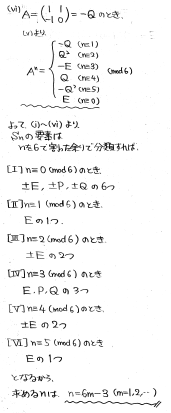 (vi) A = (1 1 / -1 0) = -Q のとき.
(v)より
A^n = { -Q (n≡1)
Q² (n≡2)
-E (n≡3)
Q (n≡4)
-Q² (n≡5)
E (n≡0) (mod 6)
よって, (i)~(vi) より
Snの要素は
nを6で割った余りで分類すれば.
[I] n≡0 (mod 6) のとき
±E, ±P, ±Q の6つ
[II] n≡1 (mod 6) のとき.
Eの1つ.
[III] n≡2 (mod 6) のとき
±E の2つ
[IV] n≡3 (mod 6) のとき
E, P, Q の3つ
[V] n≡4 (mod 6) のとき.
±E の2つ
[VI] n≡5 (mod 6) のとき
Eの1つ
となるから.
求めるnは n=6m-3 (m=1,2,…)